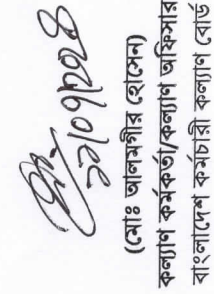 ১১/০৭/২০২৪
(মোঃ আলমগীর হোসেন)
কল্যাণ কর্মকর্তা/কল্যাণ অফিসার
বাংলাদেশ কর্মচারী কল্যাণ বোর্ড